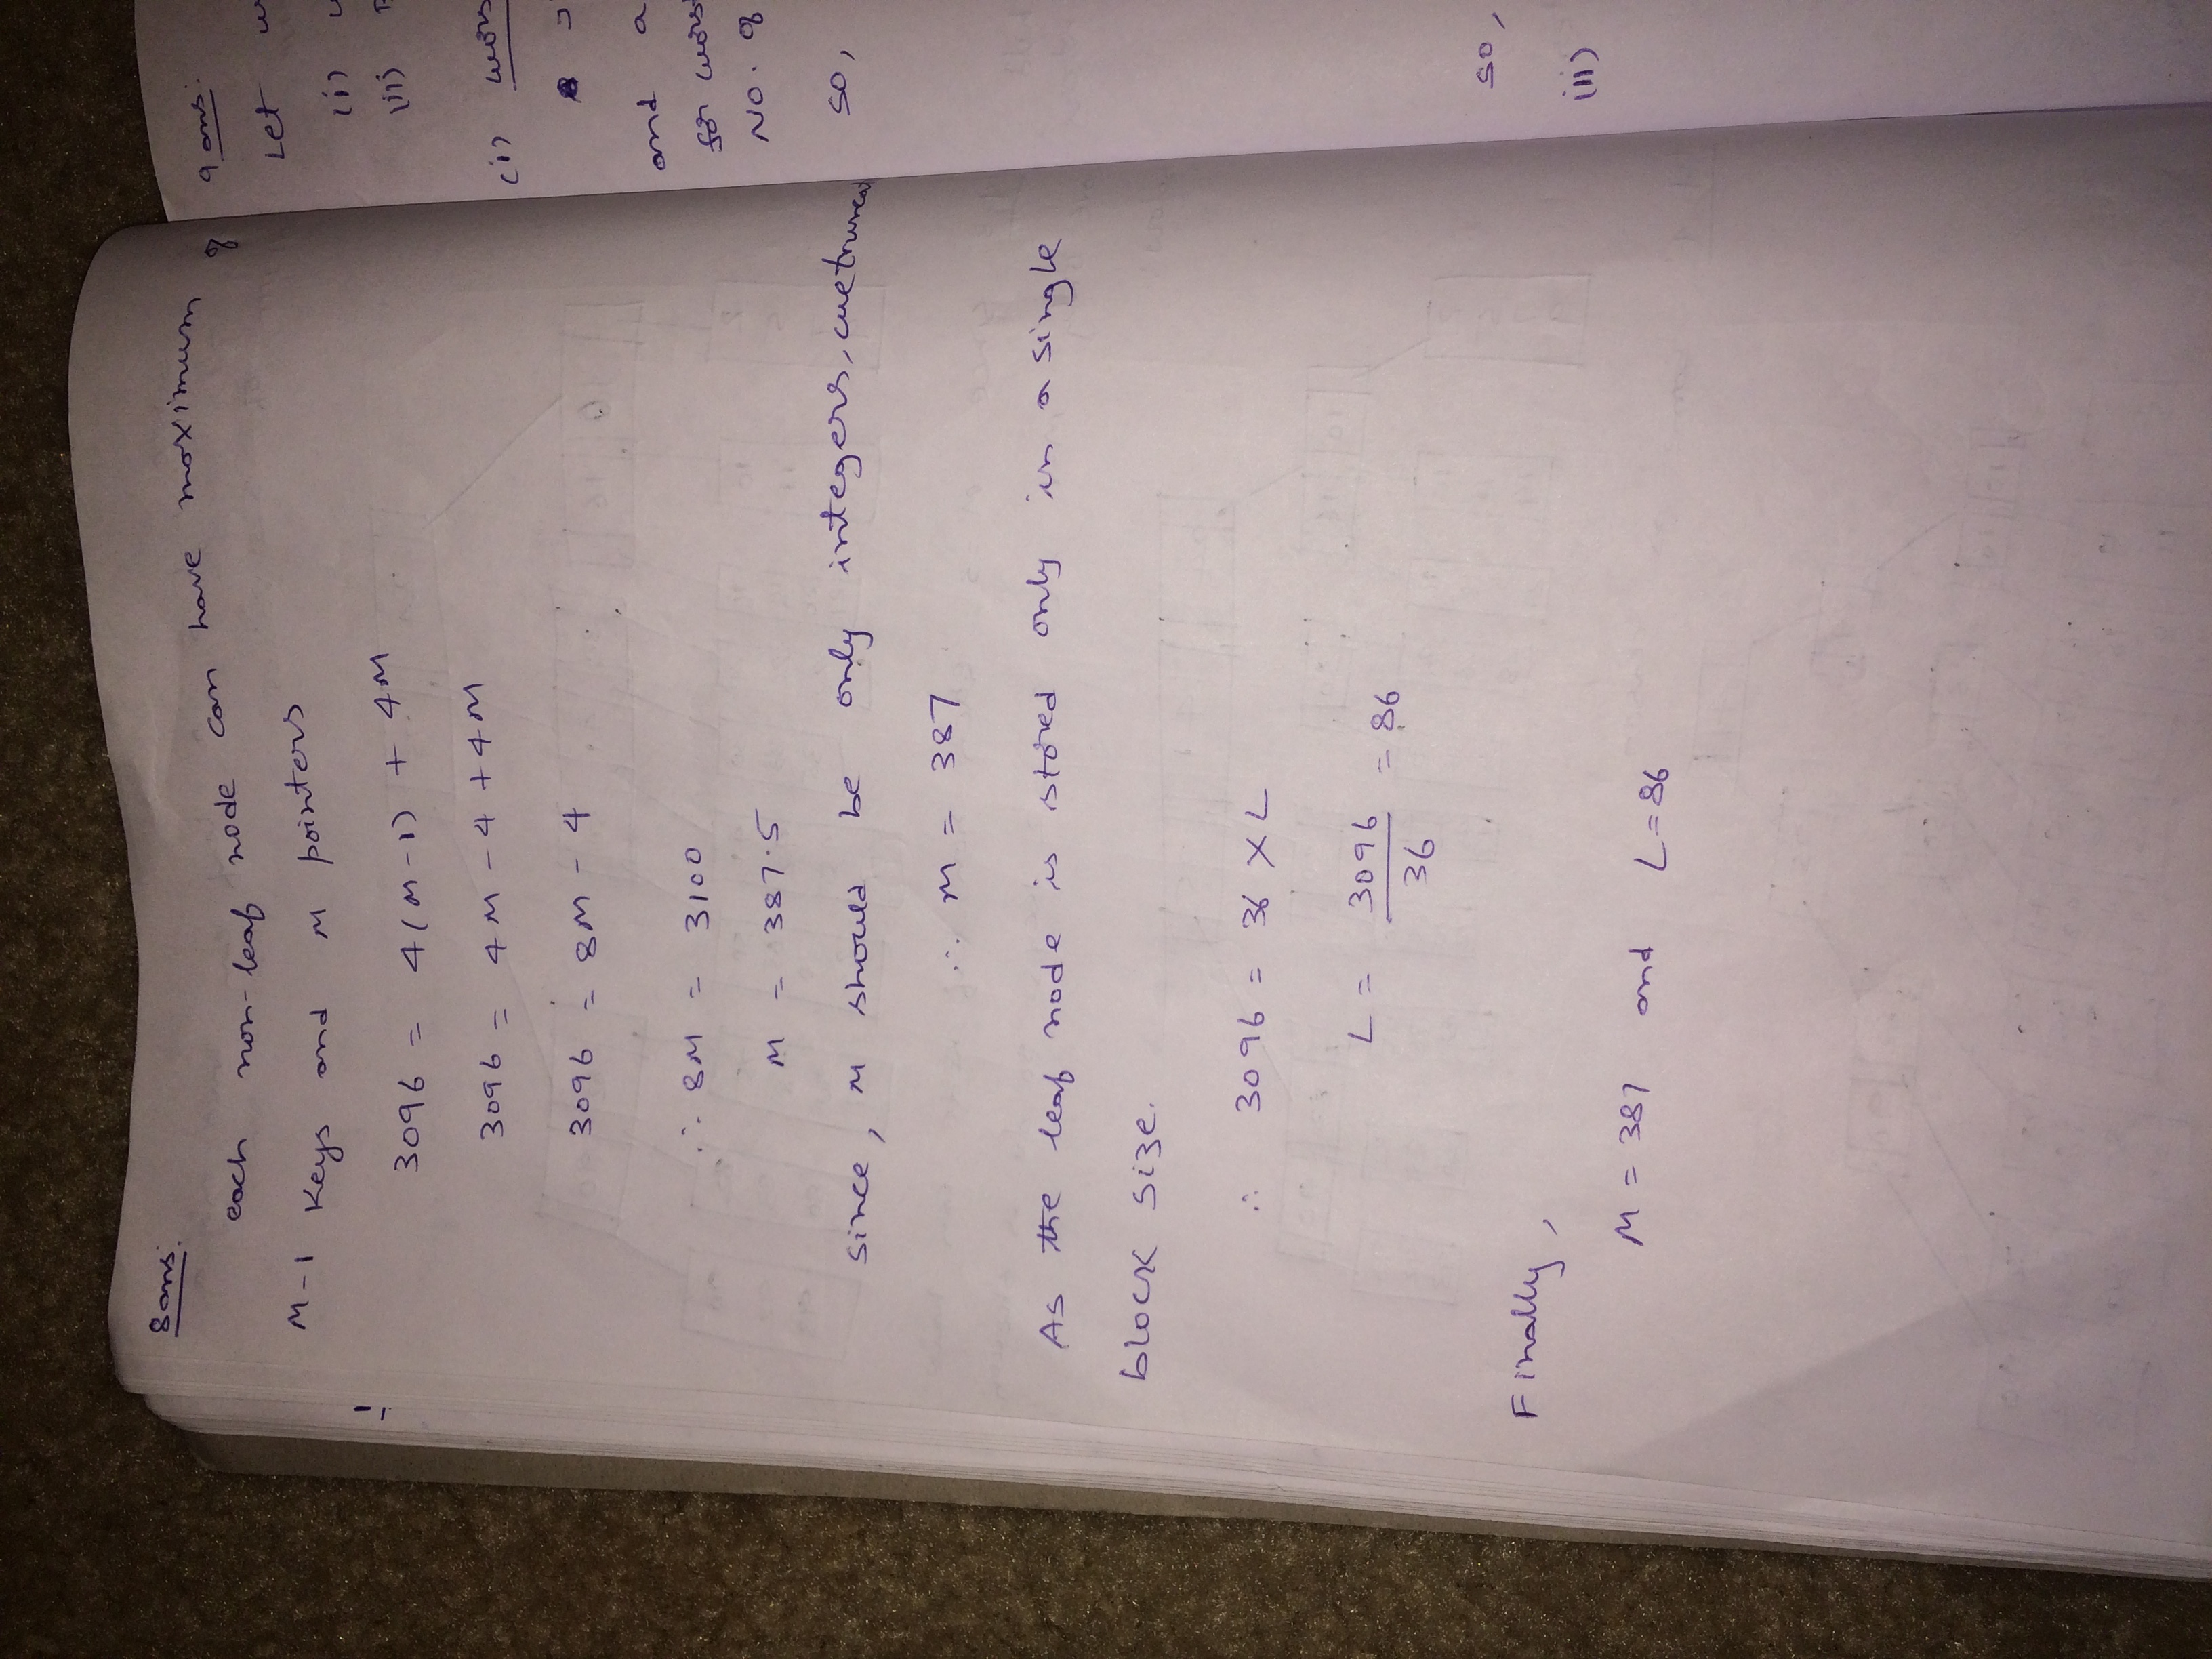 8ans:
each non-leaf node can have maximum of
M-1 Keys and M pointers
3096 = 4(M-1) + 4M
3096 = 4M - 4 + 4M
3096 = 8M - 4
∴ 8M = 3100
M = 387.5
since, M should be only integers, we
∴ M = 387
As the leaf node is stored only in a single
block size.
∴ 3096 = 36 X L
L = 3096/36 = 86
Finally,
M = 387 and L = 86
9 ans:
Let
(i)
(ii)
(i)
and a
for
NO. of
so,
so,
(ii)